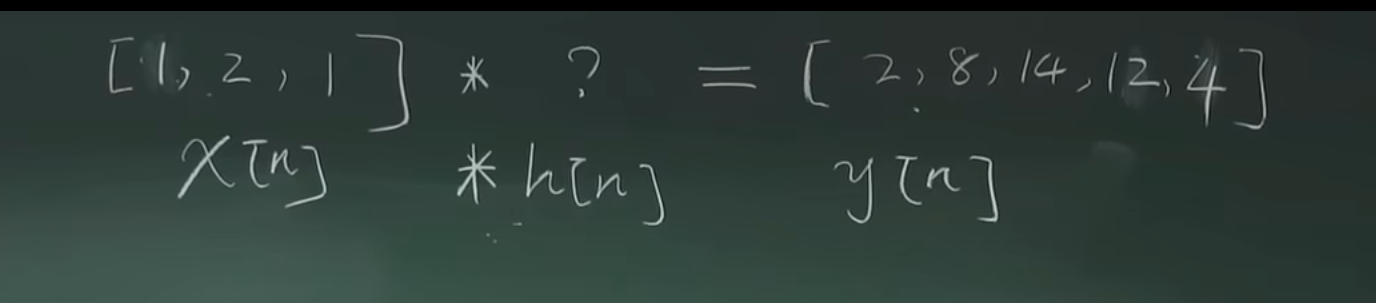 [1, 2, 1] * ? = [2, 8, 14, 12, 4]
x[n] * h[n] y[n]